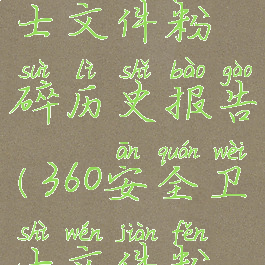 士文件粉
suì lì shǐ bào gào
碎历史报告
ān quán wèi
(360安全卫
shì wén jiàn fěn
士文件粉